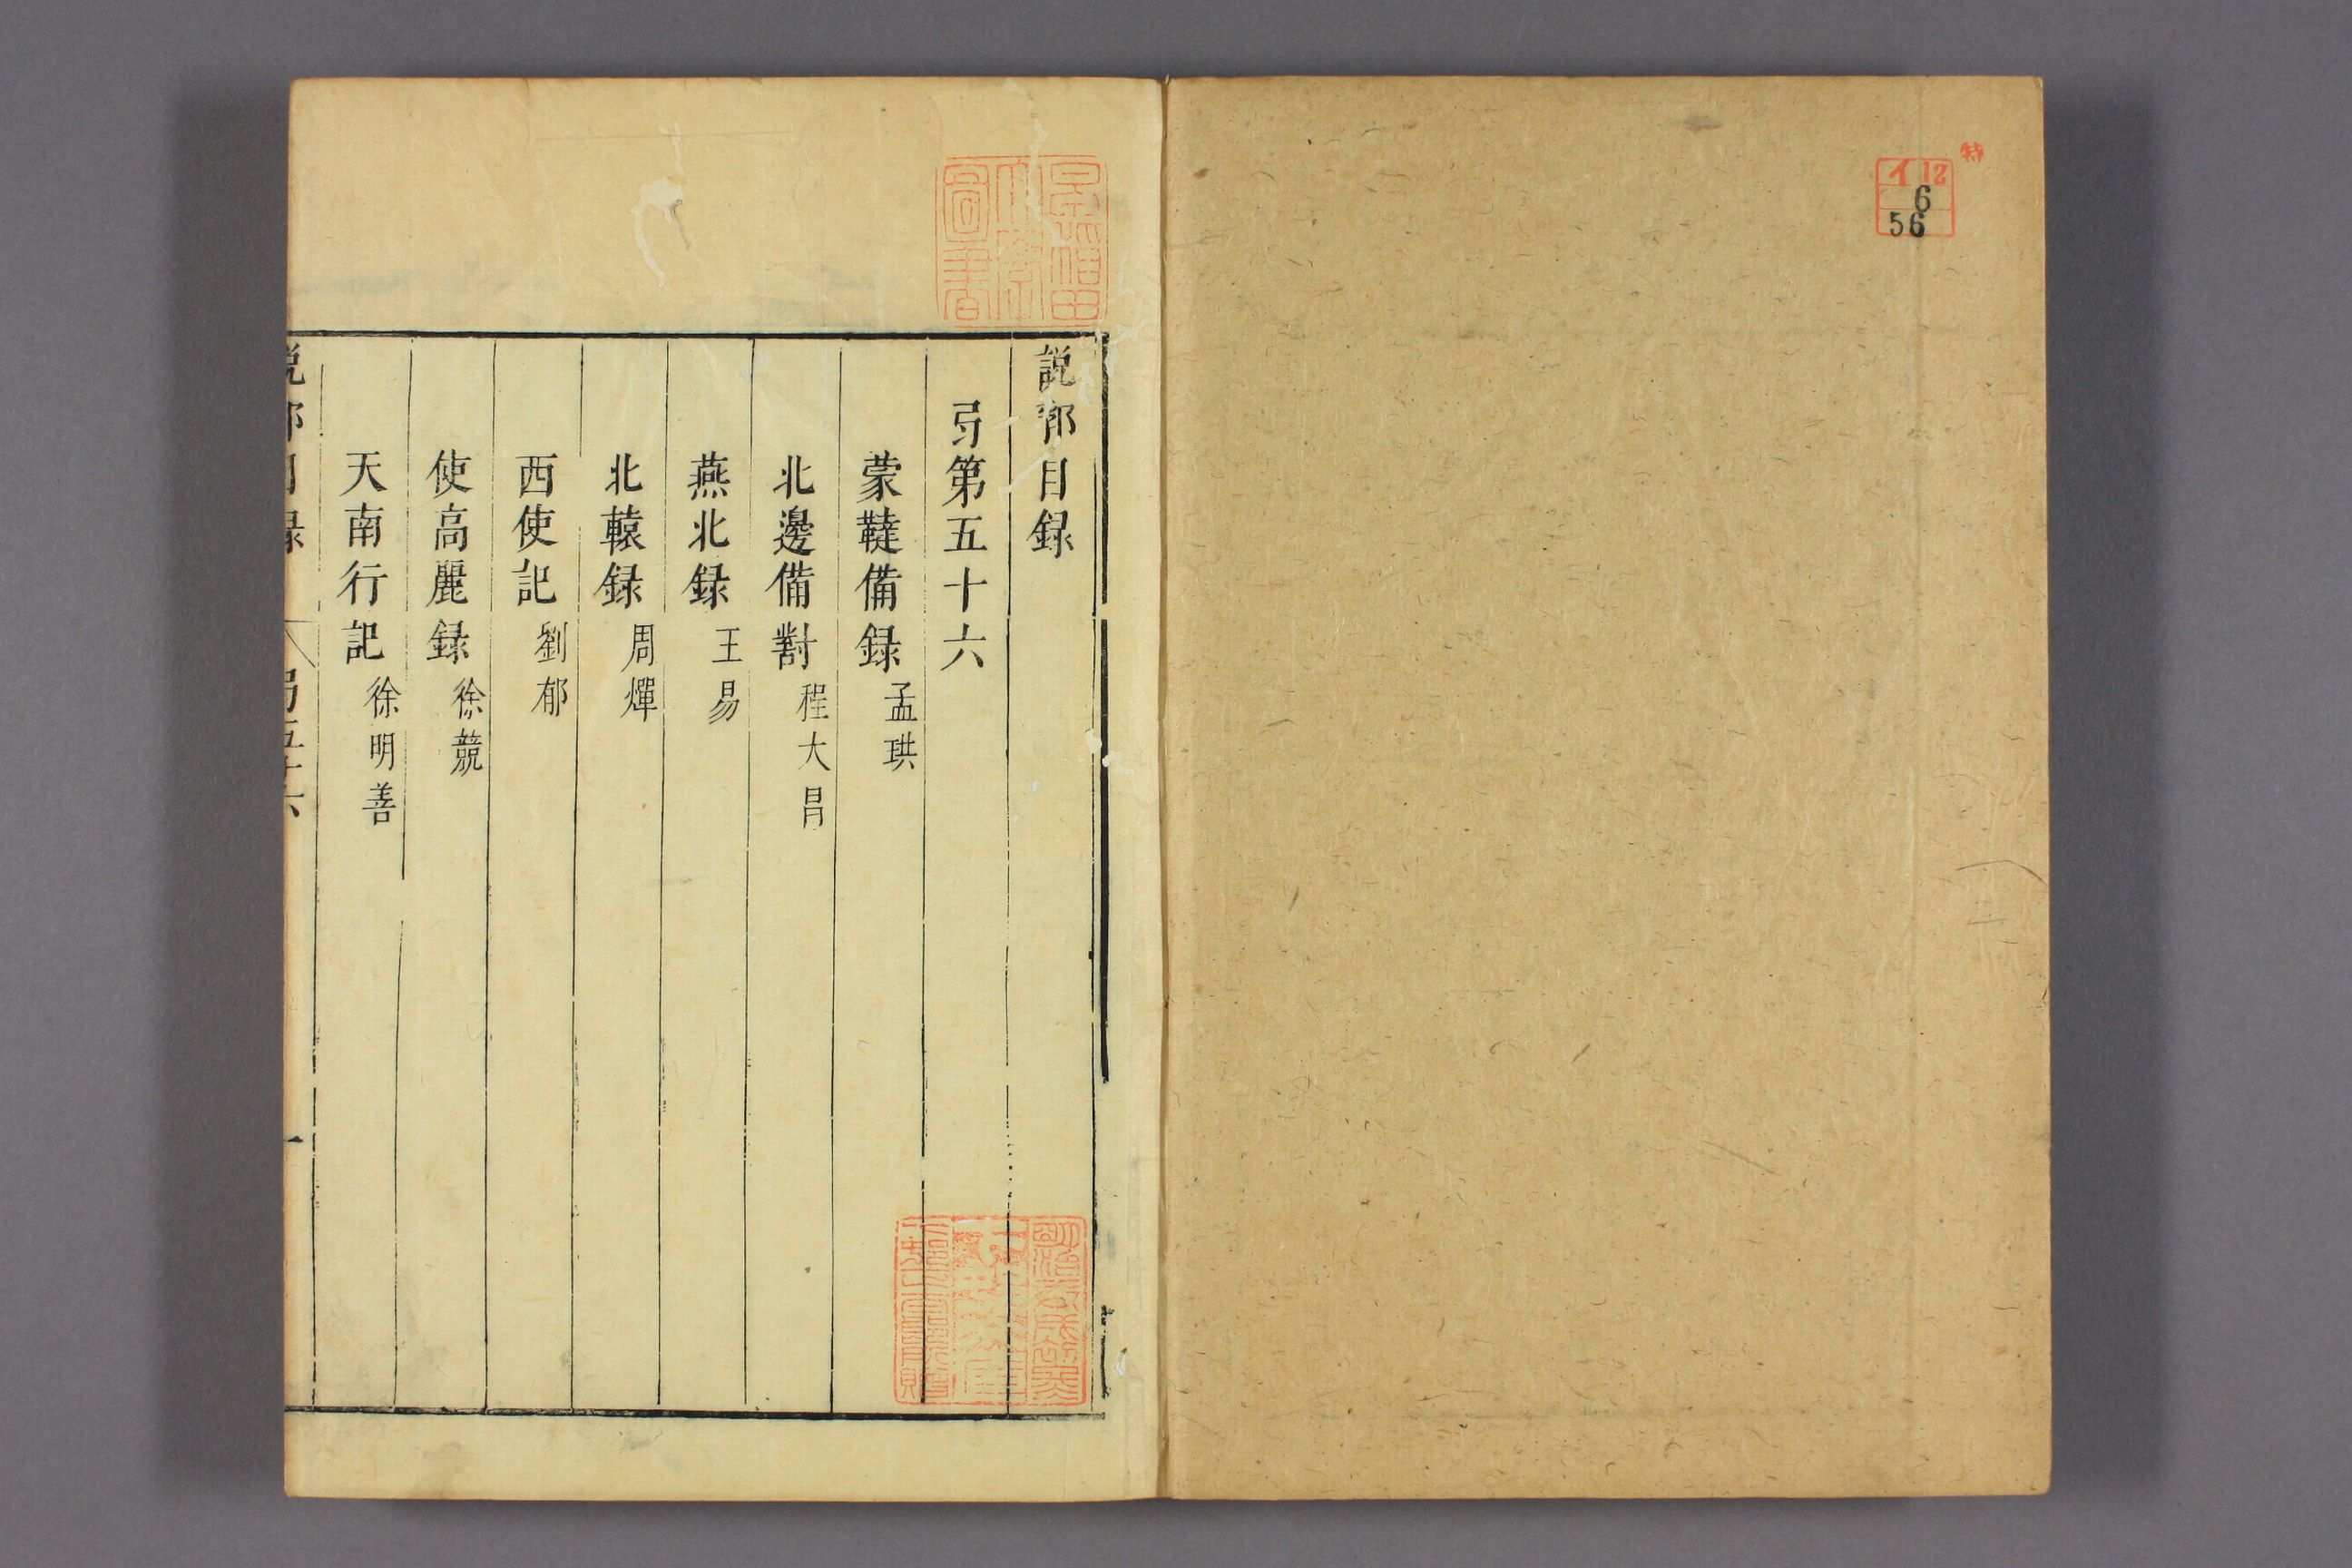 特
イ 12
6
56
説郛目録
弓第五十六
蒙韃備録 孟珙
北邊備對 程大昌
燕北録 王易
北轅録 周煇
西使記 劉郁
使高麗録 徐兢
天南行記 徐明善
説郛目録 弓五十六 一